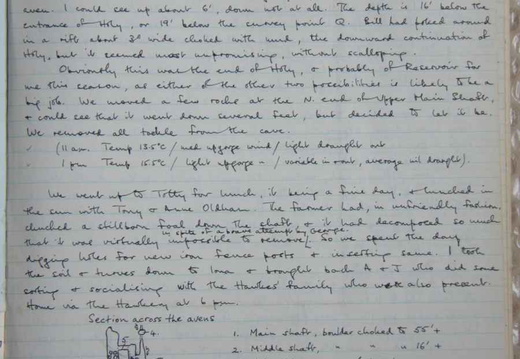 aven. I could see up about 6', down not at all. The depth is 16' below the
entrance of Holy, or 19' below the survey point Q. Bill had poked around
in a rift about 3" wide choked with mud, the downward continuation of
Holy, but it seemed most unpromising, without scalloping.
Obviously this was the end of Holy, & probably of Reservoir for
me this season, as either of the other two possibilities is likely to be a
big job. We moved a few rocks at the N. end of Upper Main Shaft,
& could see that it went down several feet, but decided to let it be.
We removed all tackle from the cave.
(11 am. Temp 13.5°C / med upgorge wind / light draught out
1 pm Temp 15.5°C / light upgorge - / variable in & out, average nil draught).
We went up to Totty for lunch, it being a fine day, & lunched in
the sun with Tony & Anne Oldham. The farmer had, in unfriendly fashion,
chucked a stillborn foal down the shaft & it had decomposed so much
that it was virtually impossible to remove, in spite of a brave attempt by George. So we spent the day
digging holes for new iron fence posts & inserting same. I took
the soil & turves down to & brought back A & J who did some
sorting & socialising with the Hawkes' family who were also present.
Home via the Hawkeery at 6 pm.
Section across the avens
4
5
1. Main shaft, boulder choked to 55' +
2. Middle shaft, " " " 16' +